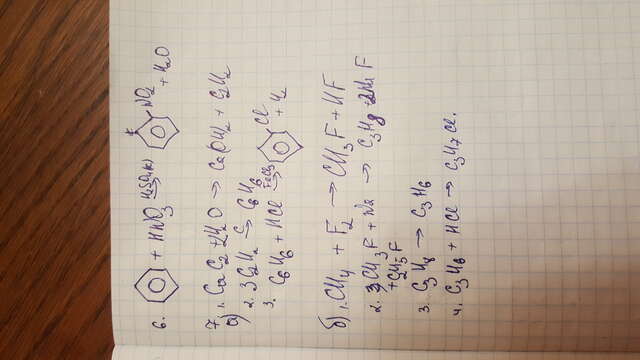 6. + HNO3 H2SO4(k) → NO2 + H2O
7
а) 1. CaC2 + 2H2O → Ca(OH)2 + C2H2
2. 3C2H2 C→ C6H6
3. C6H6 + HCl FeCl3→ Cl + H2
б) 1. CH4 + F2 → CH3F + HF
2. CH3F + Na → C3H8 + 2NaF
+ C2H5F
3. C3H8 → C3H6
4. C3H6 + HCl → C3H7Cl.